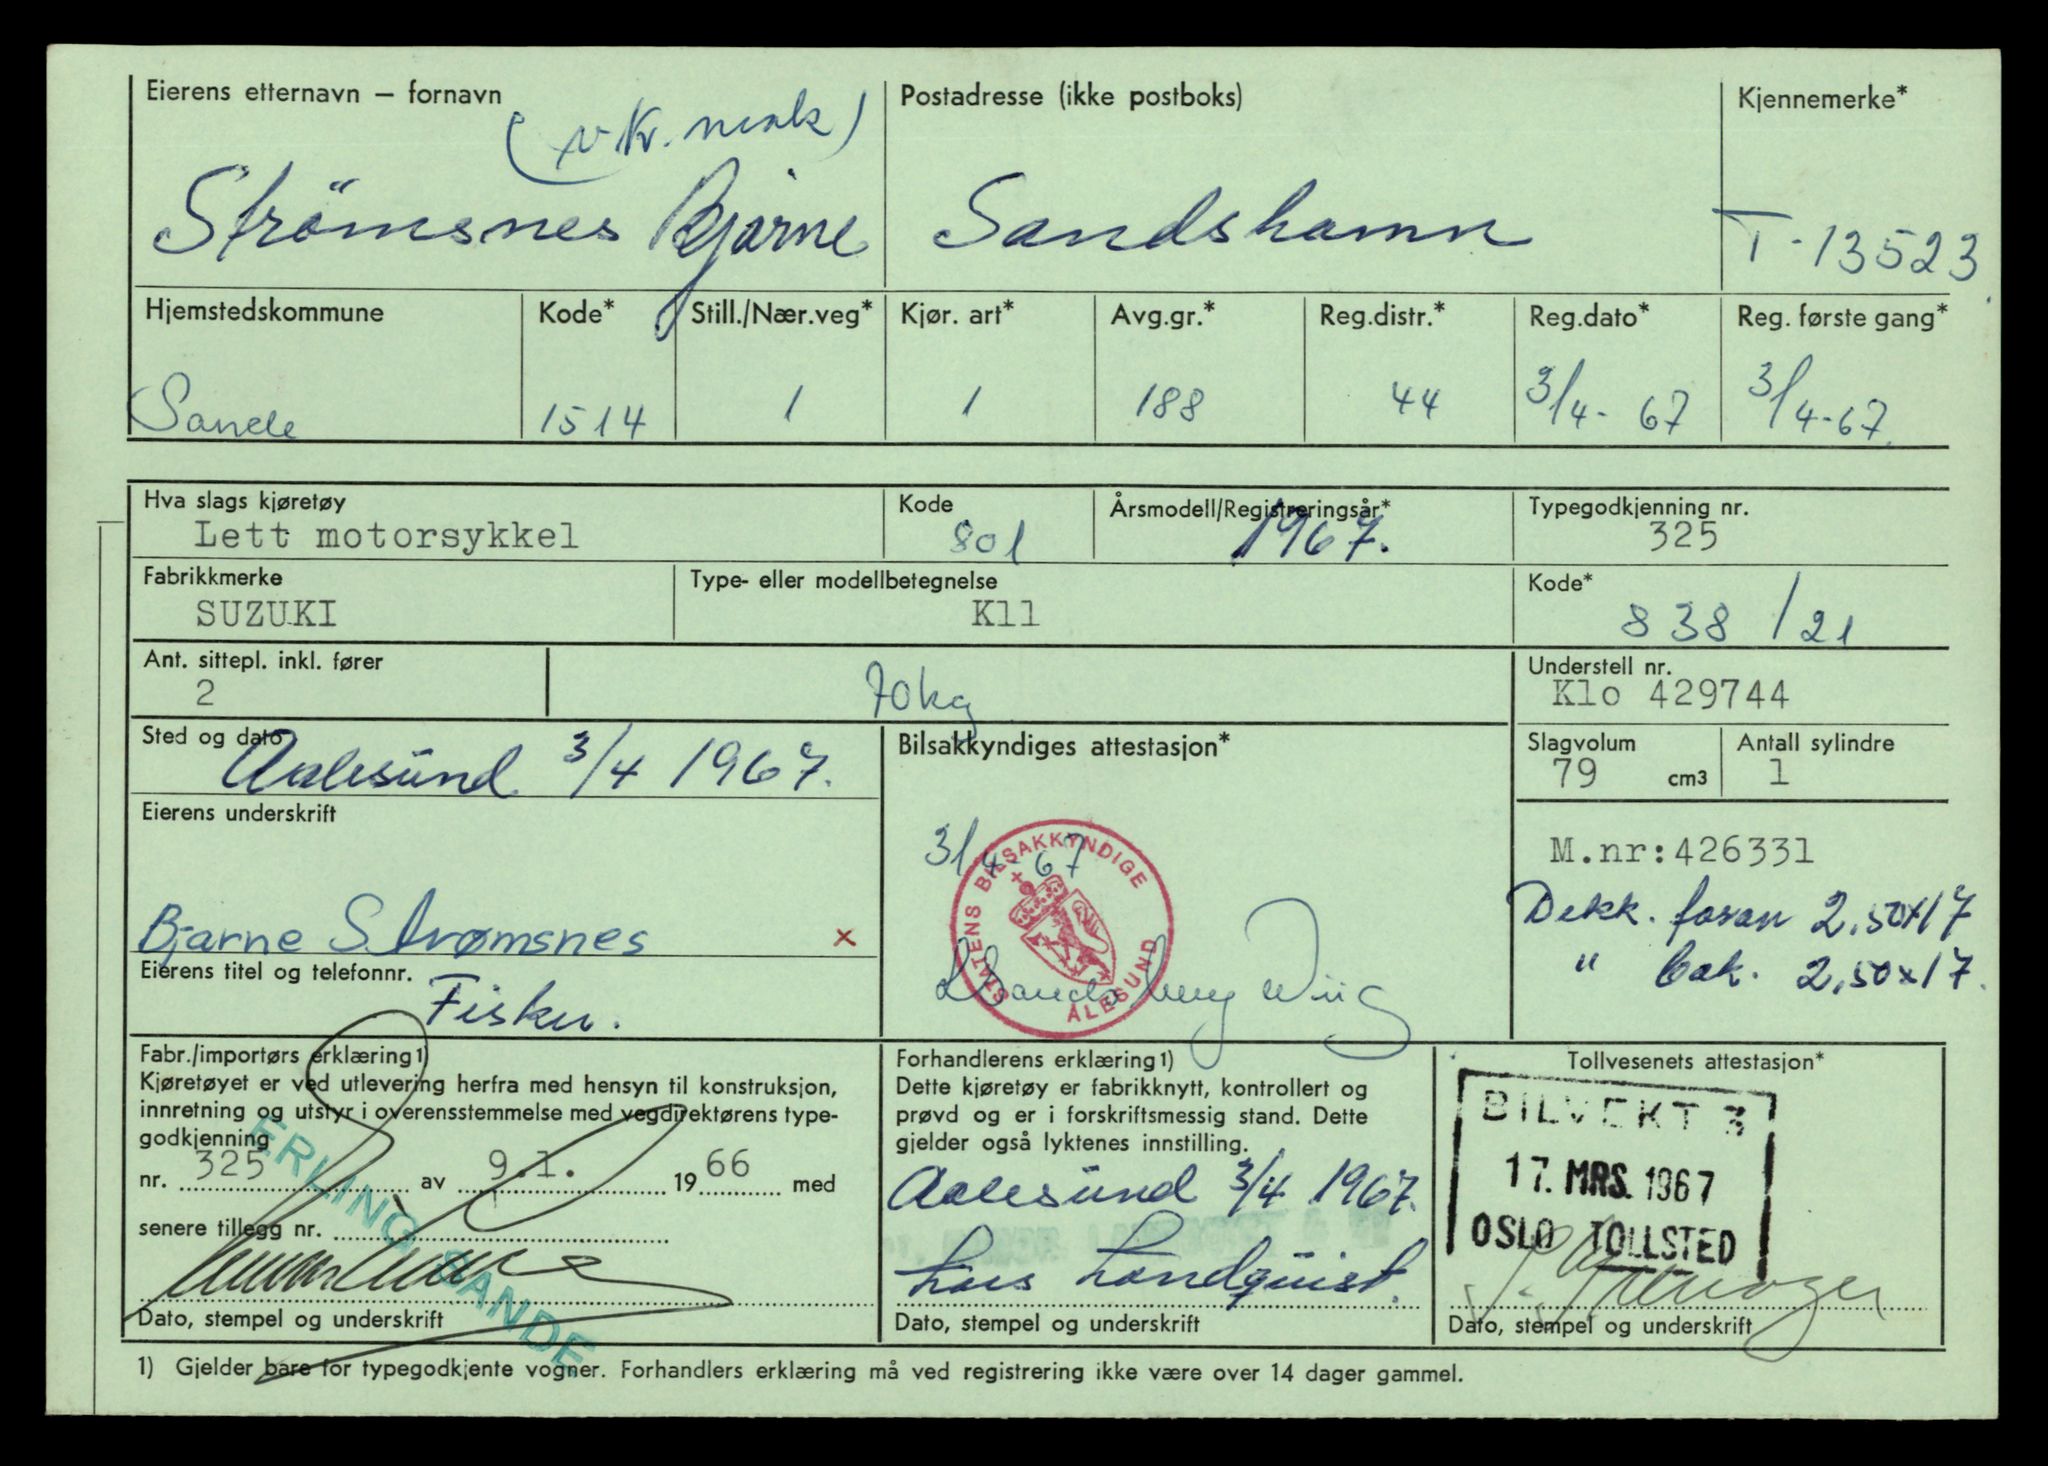 Eierens etternavn – fornavn
Postadresse (ikke postboks)
Kjennemerke*
Strömsnes Bjarne
Sandshamn
T-13523
Hjemstedskommune
Kode*
Still./Nær.veg*
Kjør. art*
Avg.gr.*
Reg.distr.*
Reg.dato*
Reg. første gang*
Sande
1514
1
1
188
44
3/4-67
3/4-67
Hva slags kjøretøy
Lett motorsykkel
Kode
801
Årsmodell/Registreringsår*
1967.
Typegodkjenning nr.
325
Fabrikkmerke
SUZUKI
Type- eller modellbetegnelse
K11
Kode*
838/21
Ant. sittepl. inkl. fører
2
70kg
Understell nr.
Klo 429744
Sted og dato
Aalesund 3/4 1967.
Bilsakkyndiges attestasjon*
Slagvolum
79 cm3
Antall sylindre
1
Eierens underskrift
3/4-67
STATENS BILSAKKYNDIGE ÅLESUND
M.nr:426331
Dekk. foran 2,50x17
" bak. 2,50x17.
Bjarne Strømsnes x
Eierens titel og telefonnr.
Fisker.
Fabr./importørs erklæring1)
Kjøretøyet er ved utlevering herfra med hensyn til konstruksjon,
innretning og utstyr i overensstemmelse med vegdirektørens type-
godkjenning
nr. 325 av 9.1. 1966 med
senere tillegg nr.
ERLING SANDE
Dato, stempel og underskrift
Forhandlerens erklæring1)
Dette kjøretøy er fabrikknytt, kontrollert og
prøvd og er i forskriftsmessig stand. Dette
gjelder også lyktenes innstilling.
Aalesund 3/4 1967.
Lars Landquist.
Dato, stempel og underskrift
Tollvesenets attestasjon*
BILVEKT 3
17. MRS. 1967
OSLO TOLLSTED
Dato, stempel og underskrift
1) Gjelder bare for typegodkjente vogner. Forhandlers erklæring må ved registrering ikke være over 14 dager gammel.